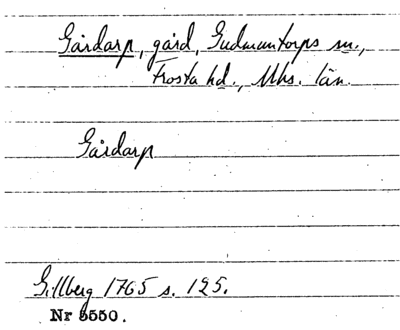 Gårdarp, gård, Gudmuntorps sn.,
Frosta hd., Mhs. län.
Gårdarp
Gillberg 1765 s. 125.
Nr 5550.